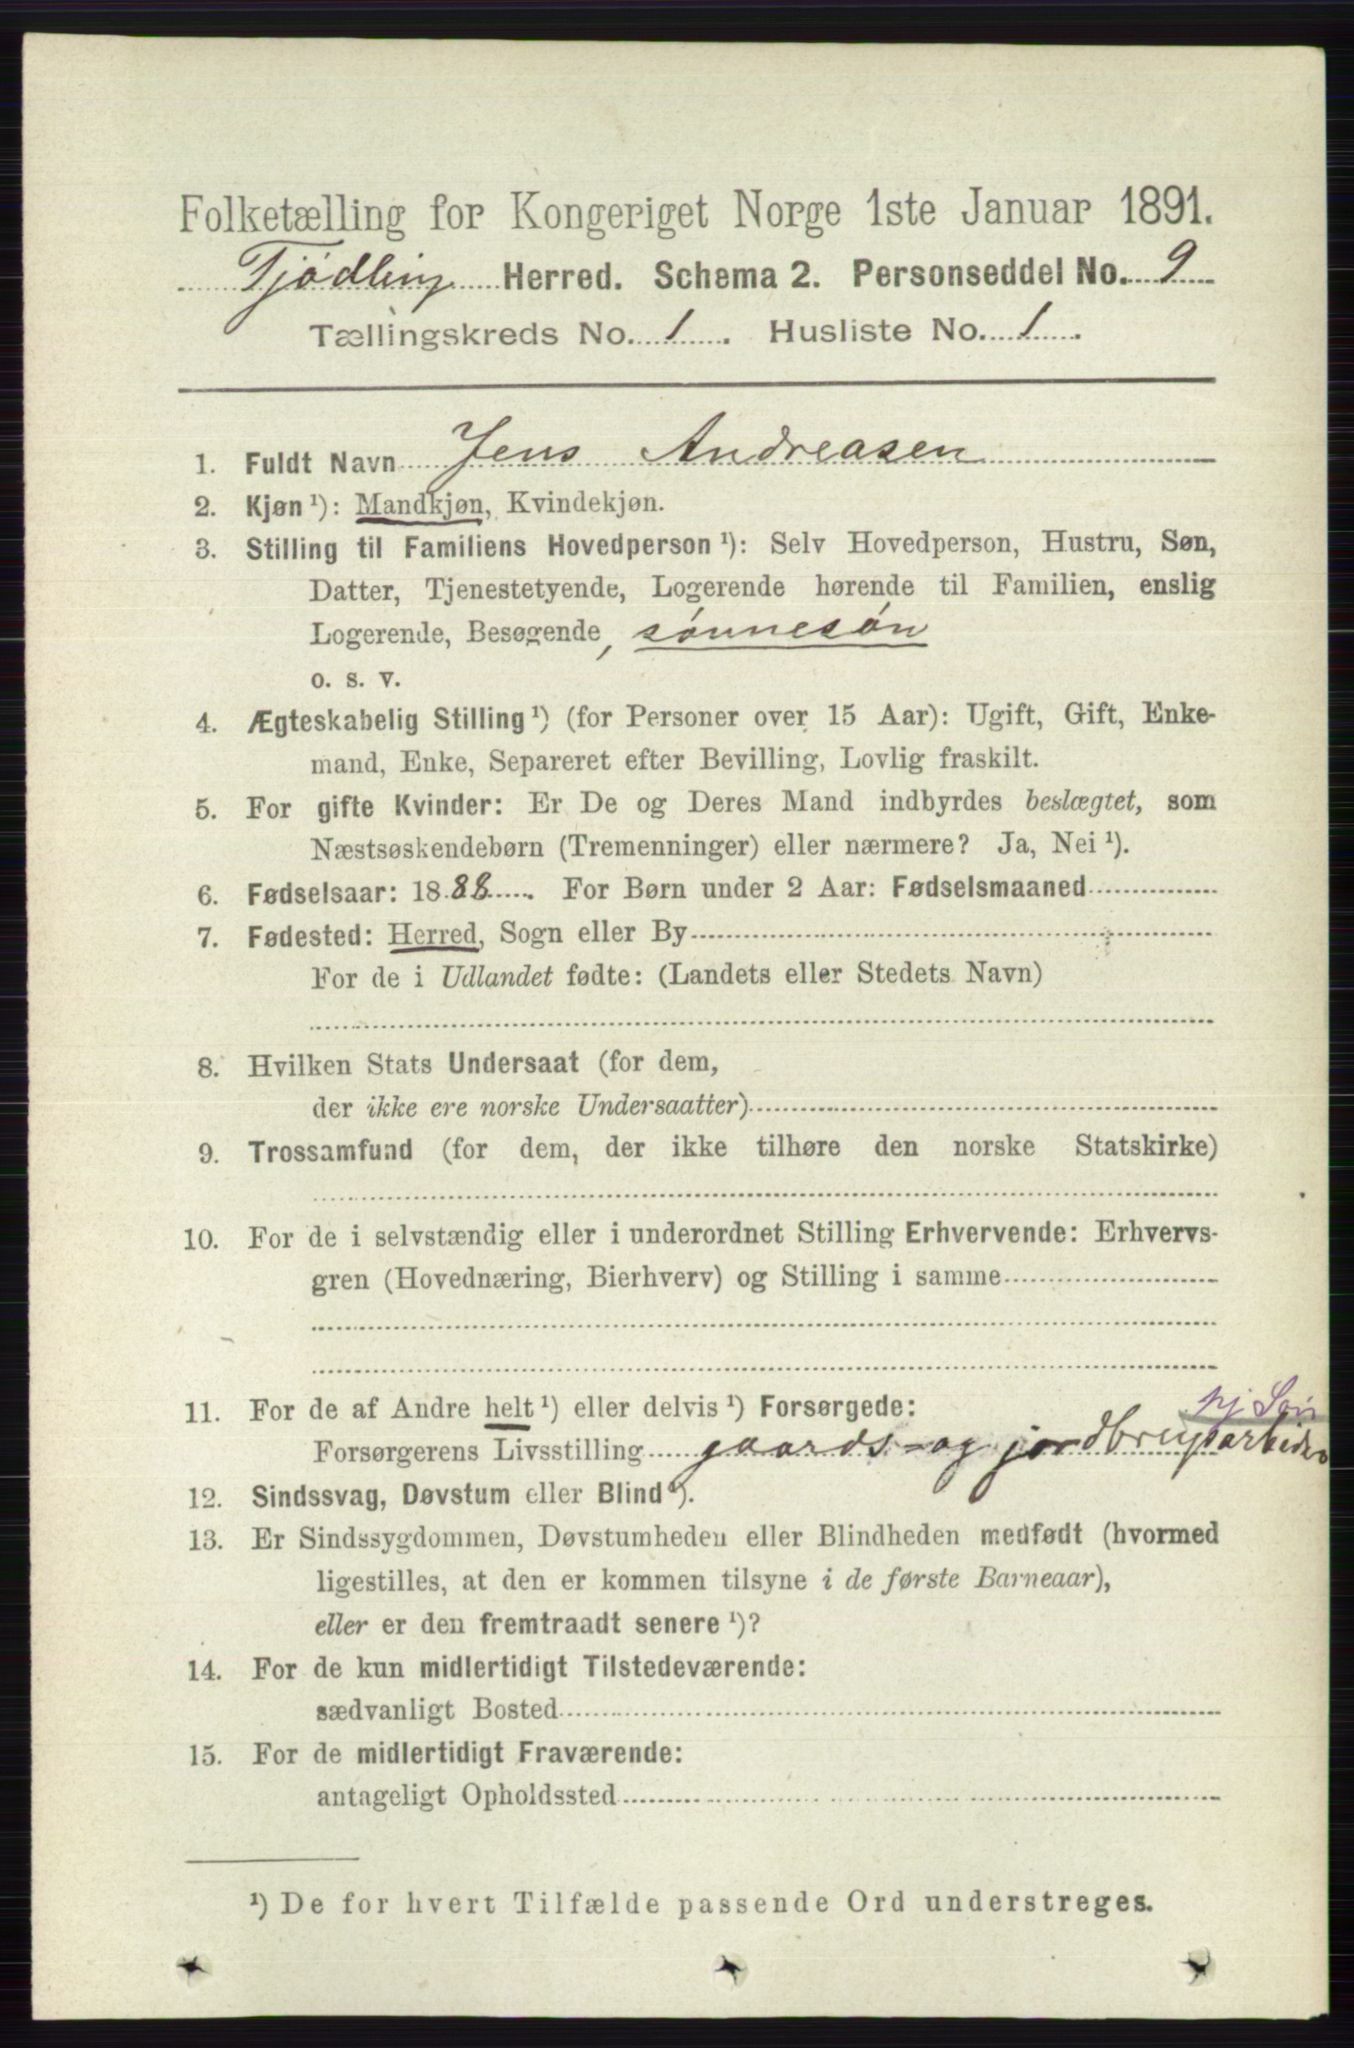 Folketælling for Kongeriget Norge 1ste Januar 1891.
Tjödling Herred. Schema 2. Personseddel No. 9
Tællingskreds No. 1. Husliste No. 1.
1. Fuldt Navn Jens Andreasen
2. Kjøn¹): Mandkjøn, Kvindekjøn.
3. Stilling til Familiens Hovedperson¹): Selv Hovedperson, Hustru, Søn,
Datter, Tjenestetyende, Logerende hørende til Familien, enslig
Logerende, Besøgende, sönnesön
o. s. v.
4. Ægteskabelig Stilling¹) (for Personer over 15 Aar): Ugift, Gift, Enke-
mand, Enke, Separeret efter Bevilling, Lovlig fraskilt.
5. For gifte Kvinder: Er De og Deres Mand indbyrdes beslægtet, som
Næstsøskendebørn (Tremenninger) eller nærmere? Ja, Nei¹).
6. Fødselsaar: 1888. For Børn under 2 Aar: Fødselsmaaned
7. Fødested: Herred, Sogn eller By
For de i Udlandet fødte: (Landets eller Stedets Navn)
8. Hvilken Stats Undersaat (for dem,
der ikke ere norske Undersaatter)
9. Trossamfund (for dem, der ikke tilhøre den norske Statskirke)
10. For de i selvstændig eller i underordnet Stilling Erhvervende: Erhvervs-
gren (Hovednæring, Bierhverv) og Stilling i samme
11. For de af Andre helt¹) eller delvis¹) Forsørgede:
Søn
Forsørgerens Livsstilling gaards- og jordbrugsarbeider
12. Sindssvag, Døvstum eller Blind¹).
13. Er Sindssygdommen, Døvstumheden eller Blindheden medfødt (hvormed
ligestilles, at den er kommen tilsyne i de første Barneaar),
eller er den fremtraadt senere¹)?
14. For de kun midlertidigt Tilstedeværende:
sædvanligt Bosted
15. For de midlertidigt Fraværende:
antageligt Opholdssted
¹) De for hvert Tilfælde passende Ord understreges.